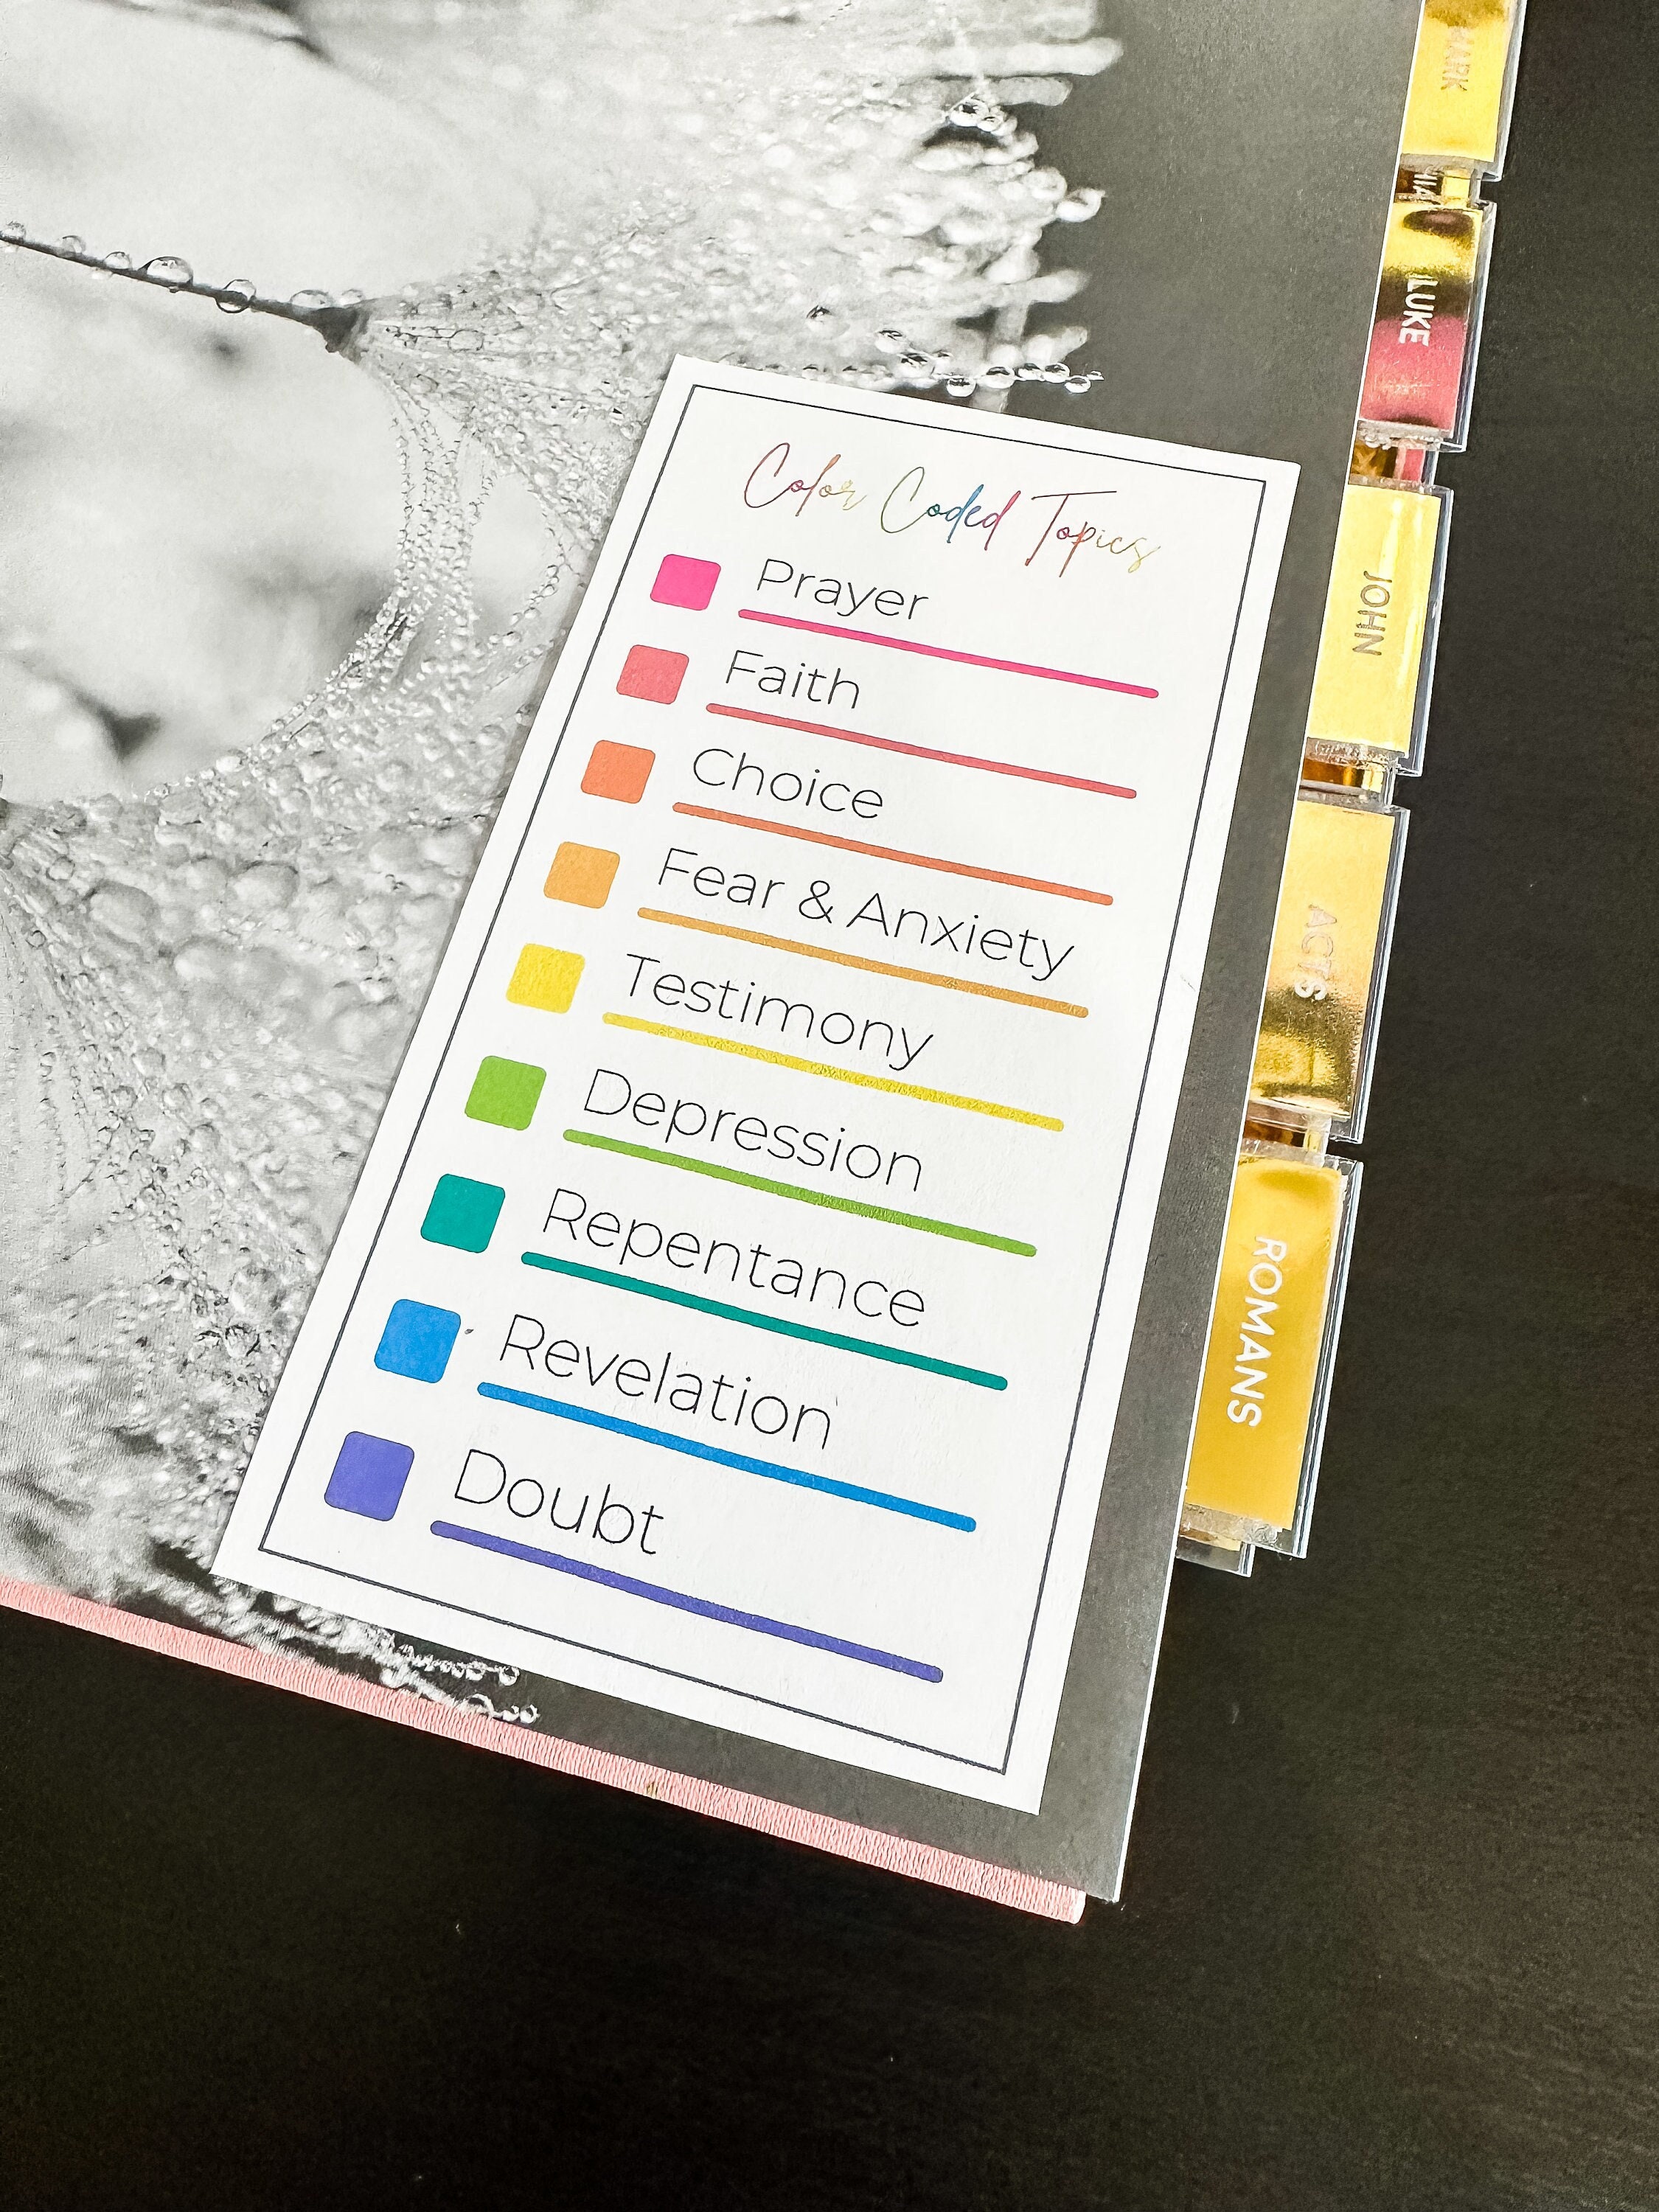 Color Coded Topics
Prayer
Faith
Choice
Fear & Anxiety
Testimony
Depression
Repentance
Revelation
Doubt
MARK
LUKE
JOHN
ACTS
ROMANS